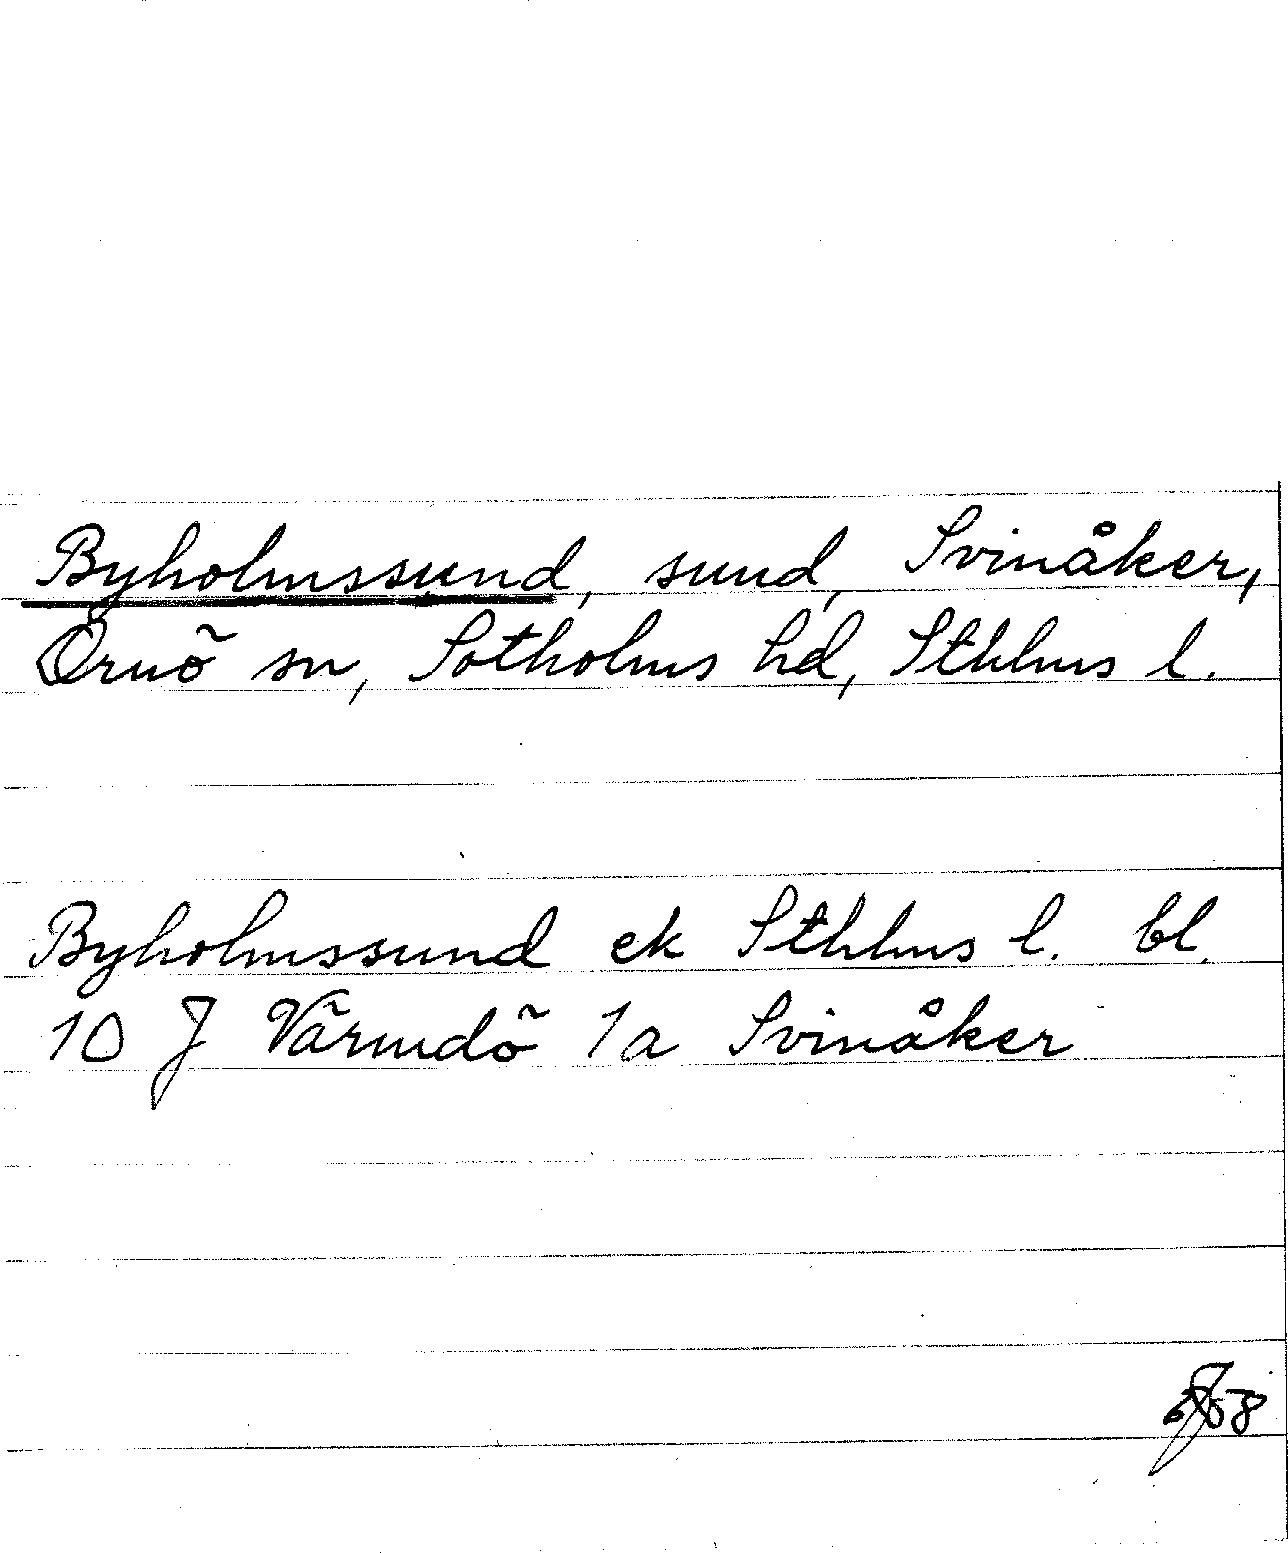 Byholmssund, sund, Svinåker,
Ornö sn, Sotholms hd, Sthlms l.
Byholmssund ek Sthlms l. bl.
10 J Värmdö 1a Svinåker